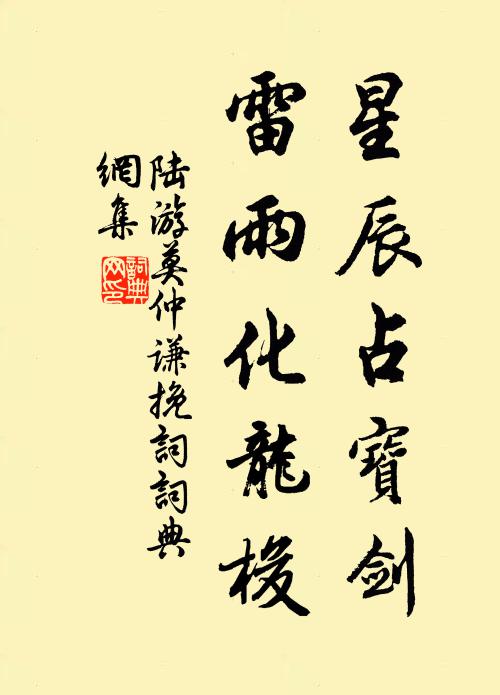 星辰占寶劍
雷雨化龍梭
陸游莫仲謙挽詞詞典
網集
詞典網印